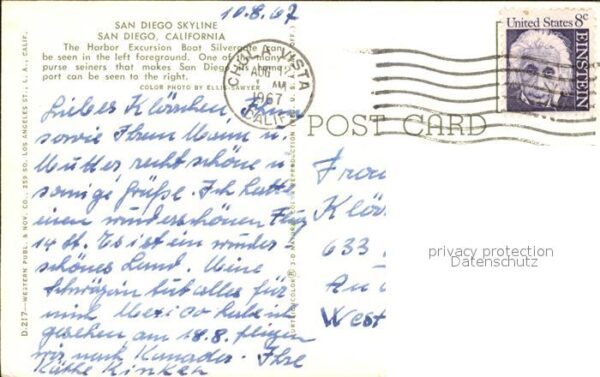 10.8.67
SAN DIEGO SKYLINE
SAN DIEGO, CALIFORNIA
The Harbor Excursion Boat Silvergate can
be seen in the left foreground. One of the many
purse seiners that makes San Diego its home
port can be seen to the right.
COLOR PHOTO BY ELLIS-SAWYER
CHULA VISTA
AUG 12
AM
1967
CALIF
United States 8c
EINSTEIN
POST CARD
Liebes Klärchen, Ihnen
sowie Ihrem Mann u.
Mutter recht schöne u.
sonnige Grüße. Ich hatte
einen wunderschönen Flug
14 St. Es ist ein wunder
schönes Land. Meine
Schwägerin tut alles für
mich Mexico habe ich
gesehen am 18.8. fliegen
wir nach Kanada. Ihre
Käthe
Frau
Klär
633
An
West
privacy protection
Datenschutz
D-217—WESTERN PUBL. & NOV. CO., 259 SO. LOS ANGELES ST., L. A., CALIF.